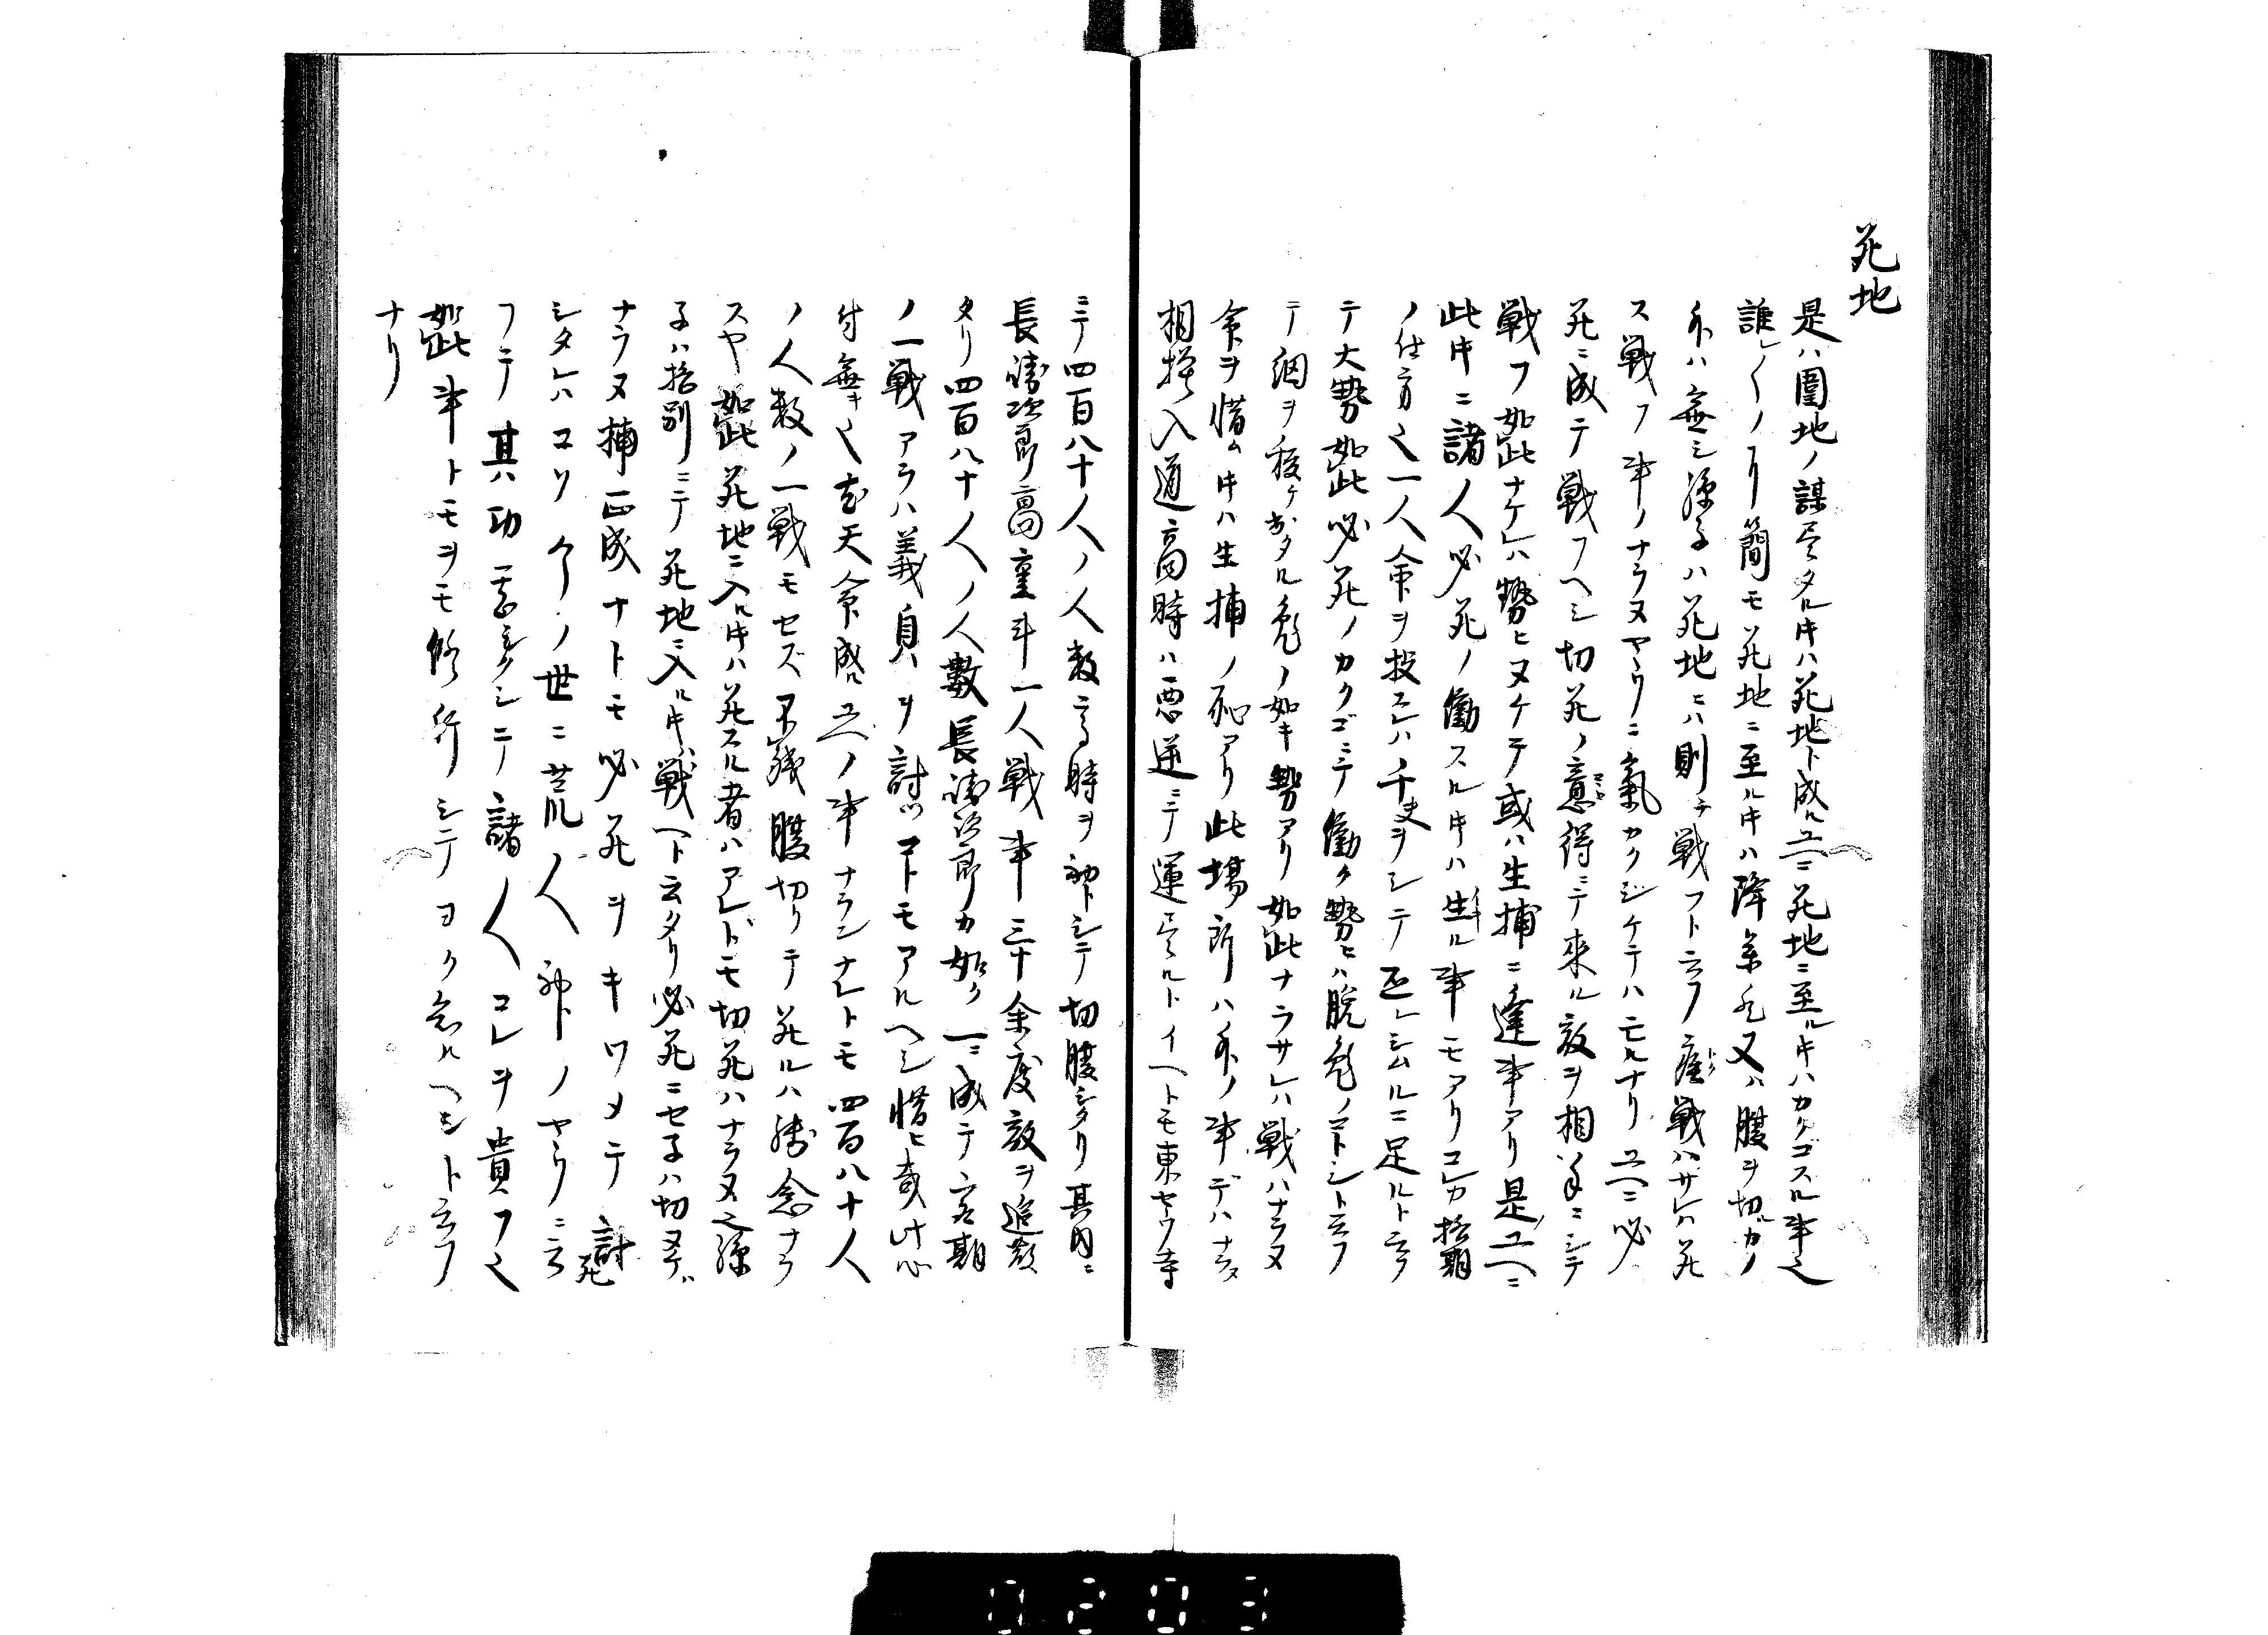 死地
是ハ圍地ノ謀尽タルキハ死地ト成ル故ニ死地ニ至ルキハカクゴスル事也
誰レ〱ノ了簡モ死地ニ至ルキハ降参カ又ハ腹ヲ切ルカノ
外ハ無シ孫子ハ死地ニハ則チ戦フト云フ疾戦ハサレハ死
ス戦フ事ノナラヌヤウニ氣カクジケテハ亡ルナリ故ニ必
死ニ成テ戦フヘシ切死ノ意得ニテ來ル敵ヲ相手ニシテ
戦フ如此ナケレハ勢ヒヌケテ或ハ生捕ニ逢事アリ是ノ故ニ
此キニ諸人必死ノ働スルキハ生ル事モアリコレカ格期
ノ仕方也一人命ヲ投スレハ千夫ヲシテ
テ大勢如此必死ノカクゴニテ働ク勢ヒハ脱兎ノコトシト云フ
テ網ヲ ケ出タル兎ノ如キ勢アリ如此ナラサレハ戦ハナラヌ
命ヲ惜ムキハ生捕ノ恥アリ此場所ハ外ノ事デハナラヌ
相摸入道高時ハ悪逆ニテ運尽ルトイヘトモ東セウ寺
ニテ四百八十人ノ人数高時ヲ初トシテ切腹シタリ其内ニ
長崎次郎高重斗一人戦事三十余度敵ヲ追散
タリ四百八十人ノ人數長崎次郎カ如ク一ニ成テ 期
ノ一戦アラハ義貞ヲ討ツコトモアルヘシ惜ヒ哉此心
付無キ也 天命成ル故ノ事ナランナレトモ四百八十人
ノ人数ノ一戦モセズ不残腹切リテ死ルハ残念ナラ
スヤ如此死地ニ入ルキハ死スル者ハアレドモ切死ハナラヌ也孫
子ハ格別ニテ死地ニ入ルキハ戦ヘト云タリ必死ニセ子ハ切ヌケ
ナラヌ楠正成ナトモ必死ヲキワメテ討死
シタレハコソ今ノ世ニ荒人神ノヤウニ云
フテ其ノ功 シテ諸人コレヲ貴フ也
如此事トモヲモ修行シテヨク意ルヘシト云フ
ナリ
0203